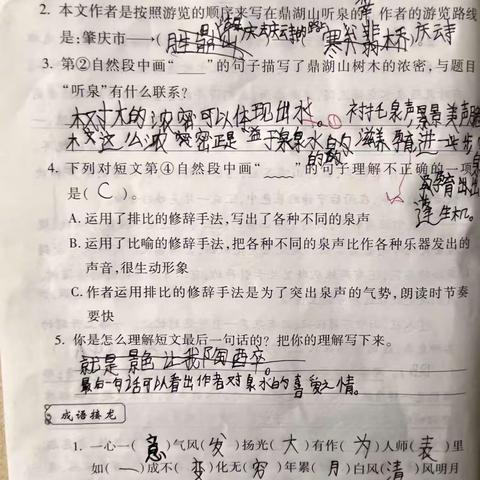 2. 本文作者是按照游览的顺序来写在鼎湖山听泉的, 作者的游览路线
是:肇庆市→( 鼎湖山 寒翠桥 庆云寺
3. 第②自然段中画“____”的句子描写了鼎湖山树木的浓密,与题目
“听泉”有什么联系?
树木的浓密可以体现出水。 衬托泉声
木这么浓密正是 泉水的滋养
4. 下列对短文第④自然段中画“﹏﹏”的句子理解不正确的一项
是( C )。
A. 运用了排比的修辞手法,写出了各种不同的泉声
B. 运用了比喻的修辞手法,把各种不同的泉声比作各种乐器发出的
声音,很生动形象
C. 作者运用排比的修辞手法是为了突出泉声的气势,朗读时节奏
要快
生机。
5. 你是怎么理解短文最后一句话的? 把你的理解写下来。
就是景色让我陶醉
最后一句话可以看出作者对泉水的喜爱之情。
成语接龙
1. 一心一( 意 )气风( 发 )扬光( 大 )有作( 为 )人师( 表 )里
如( 一 )成不( 变 )化无( 穷 )年累( 月 )白风( 清 )风明月